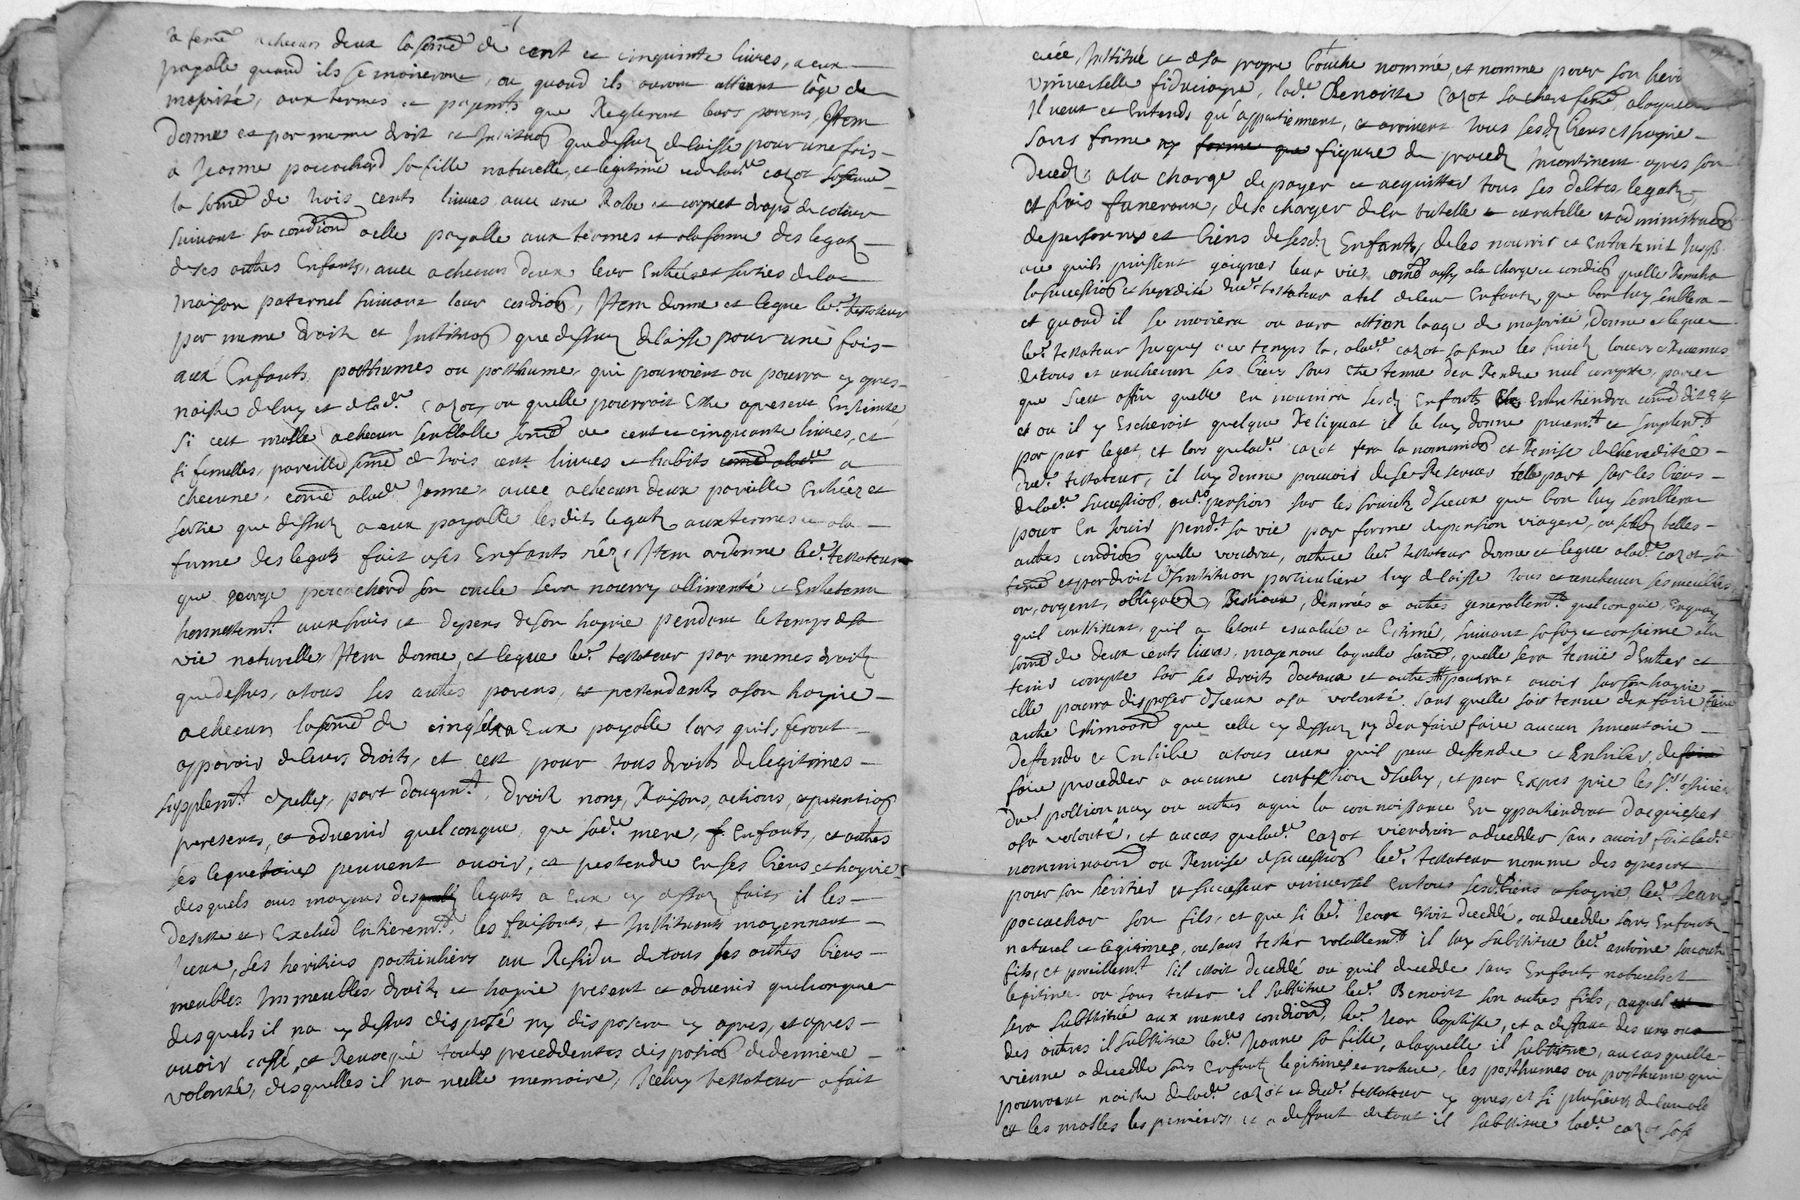 sa femē a checun deux la somē de cent et cinquante livres, a eux
payalle quand ils se marieront, ou quand ils auront atteint l'âge de
majorité, aux termes et payemts que Regleront leurs parens, Item
donne et par meme droit et Instituōn que dessuz delaisse pour une fois
a Jeanne poccachard sa fille naturelle, et legitime et de lade cazot sa feme
la somē de trois cents livres avec une Robe et drapts de couleur
suivant sa condiōn a elle payalle aux termes et a la forme des legatz
de ses autres Enfants, avec a checun deux leur Entrées et sorties de la
maison paternel suivant leur condiōn, Item donne et legue ledt testateur
par meme droit et Instituōn que dessuz delaisse pour une fois
aux Enfants posthumes ou posthume qui pourroient ou pourra cy apres
naistre de luy et de lade cazot, ou quelle pourroit Estre a present Enceinte
si cest masle a checun semblable somē de cent et cinquante livres, et
si femelles, pareille somē de trois cent livres et habits comē a lade a
checune, comē a lade Janne, avec a checun deux pareille Entrées et
sortie que dessuz a eux payalle lesdits legatz aux termes et a la
forme des legats fait a ses Enfants néz, Item ordonne ledt testateur
que george poccachard son oncle sera nourry allimenté et Entretenu
honnestemt aux frais et depens de son hoyrie pendant le temps de sa
vie naturelle, Item donne, et legue ledt testateur par memes droitz
que dessus, a tous ses autres parens, et pretendants a son hoyrie
a checun la somē de cinq sols a Eux payalle lors quils feront
apparoir de leurs droits, et cest pour tous droits de legitimes
supplemt dycelles, part d'augmt, droitz, noms, Raisons, actions, et pretentiōs
presents, et advenir quelconque, que sade mere, Enfants, et autres
ses legataires peuvent avoir, et pretendre en ses biens et hoyrie
desquels aux moyens des legats a Eux cy dessuz faits il les
deiette et Exclud Entieremt, les faisants, et Instituants moyennant
Iceux, ses heritiers particuliers au Residu de tous ses autres biens
meubles Immeubles droitz et hoyrie present et advenir quelconque
desquels il na cy dessus disposé ny disposera cy apres, et apres
avoir cassé, et Revocqué toutes preceddentes disposiōns de derniere
volonté, desquelles il na nulle memoire, Iceluy testateur a fait
créé, Institué et de sa propre bouche nommé, et nomme pour son heri
universelle fiduciaire, lade Benoitte Cazot sa chere femē, a laquelle
Il veut et Entends qu'appartiennent, et arrivent tous sesdz biens et hoyrie
sans forme ny forme que figure de procedz Incontinent apres son
Decedz a la charge de payer et acquitter tous ses debtes legatz
et frais funeraux, de se charger de la tutelle et curatelle et administraōn
de personnes et biens de sesdz Enfants, de les nourrir et Entretenir Jusq
a ce quils puissent gaigner leur vie, comē aussy a la charge et condiōn quelle Remettra
la successiōn et heredité dudt testateur a tel de leur Enfants que bon luy semblera
et quand il se mariera ou aura attion laage de majorité, Donne et legue
ledt testateur Jusques a ce temps la, a lade cazot sa feme les fruitz louers et Revenus
de tous et un checun ses biens sans etre tenue den Rendre nul compte, parce
que sest affin quelle en nourrira sesdz Enfants Entretiendra comē dit est
et ou il y Escherroit quelque Reliquat il le luy donne puremt et simplemt
par pur legat, et lors que lade cazot fera la nominaōn et Remise de lheredité
dudt testateur, il luy donne pouvoir de se Reserver telle part sur les biens
de lade successiōn, ou pension sur les fruitz diceux que bon luy semblera
pour En Jouir pendt sa vie par forme de pension viagere, ou soubz telles
autres condiōns quelle voudra, outre ledt testateur donne et legue a lade cazot sa
femē et par droit dInstitution particuliere luy delaisse tous et un checun ses meubles
or, argent, obligaōn, Bestiaux, denrées et autres generallemt quelconque, En quoy
quil consistent, quil a le tout esvalué et Estimé, suivant sa foy et conscience a la
somē de deux cents livres, moyennant laquelle somē, quelle sera tenüe dEntrer et
tenir compte sur ses droits dotaux et autre pouvant avoir sur son hoyrie
elle pourra disposer diceux a sa volonté sans quelle soit tenue den faire faire
autre Estimaōn que celle cy dessuz ny den faire faire aucun Inventaire
Deffends et Enhibe a tous ceux quil peut deffendre et Enhiber, de faire
faire procedder a aucune confection dIceluy, et par Expres prie les Srs officiers
dudt pollionnay ou autres a qui la connoissance En appartiendrat dacquiescer
a sa volonté, et au cas que lade cazot viendroit a decedder sans avoir fait lade
nomminaōn ou Remise de successiōn ledt testateur nomme des a present
pour son heritier et successeur universel en tous sesdz biens et hoyrie, ledt Jean
poccachar son fils, et que si ledt Jean Estoit deceddé, ou decedde sans Enfants
naturel et legitimes, ou sans tester vallablemt il luy substitue ledt antoine son autre
fils, et pareillemt sil estoit deceddé ou quil decedde sans Enfants naturels et
legitime ou sans tester il substitue ledt Benoist son autres fils, auquel
sera substitué aux memes condiōns, ledt Jean baptiste, et a deffaut des uns ou
des autres il substitue lade Jeanne sa fille, a laquelle il substitue, au cas quelle
vienne a decedde sans Enfants legitimes et nature, les posthumes ou posthume qui
pourront naistre de lade cazot et dudt testateur cy apres, et si plusieurs de lun ale
et les masles les premiers, et a deffaut de tout il substitue lade cazot sa fe